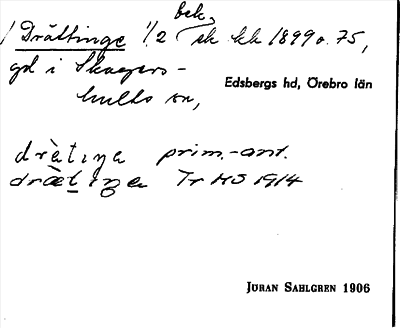 bek.
/ Drättinge 1/2 sk kk 1899 o. 75,
gd i Skagers-
hults sn,
Edsbergs hd, Örebro län
dràtiŋa prim.-ant.
dræ̀tiŋa Tr HS 1914
JÖRAN SAHLGREN 1906